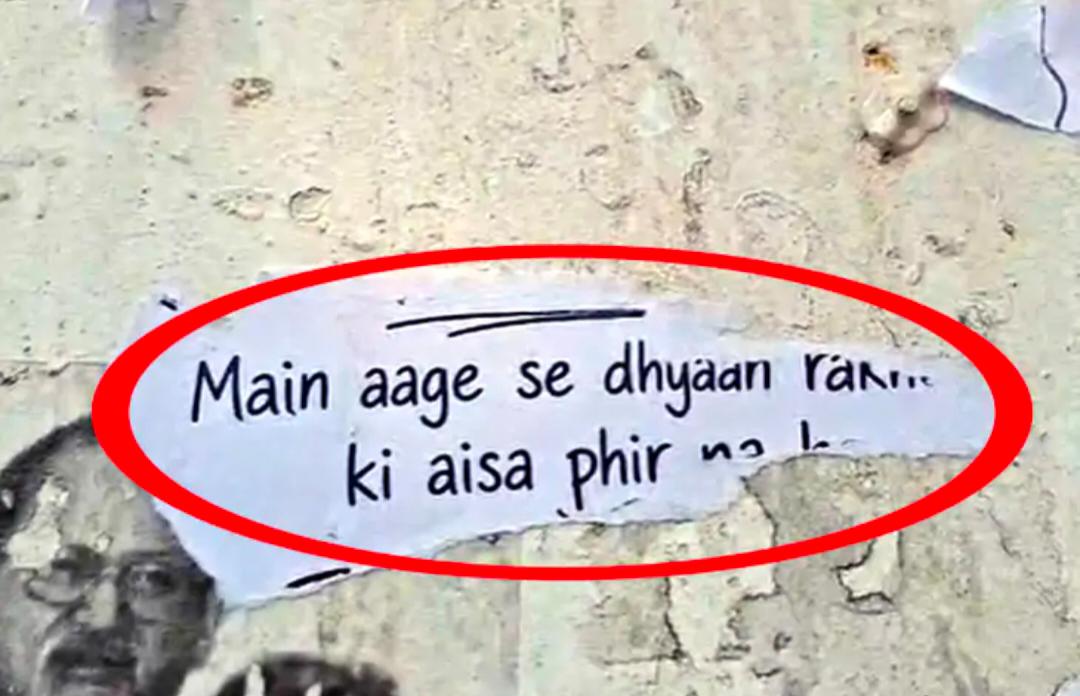 Main aage se dhyaan
ki aisa phir